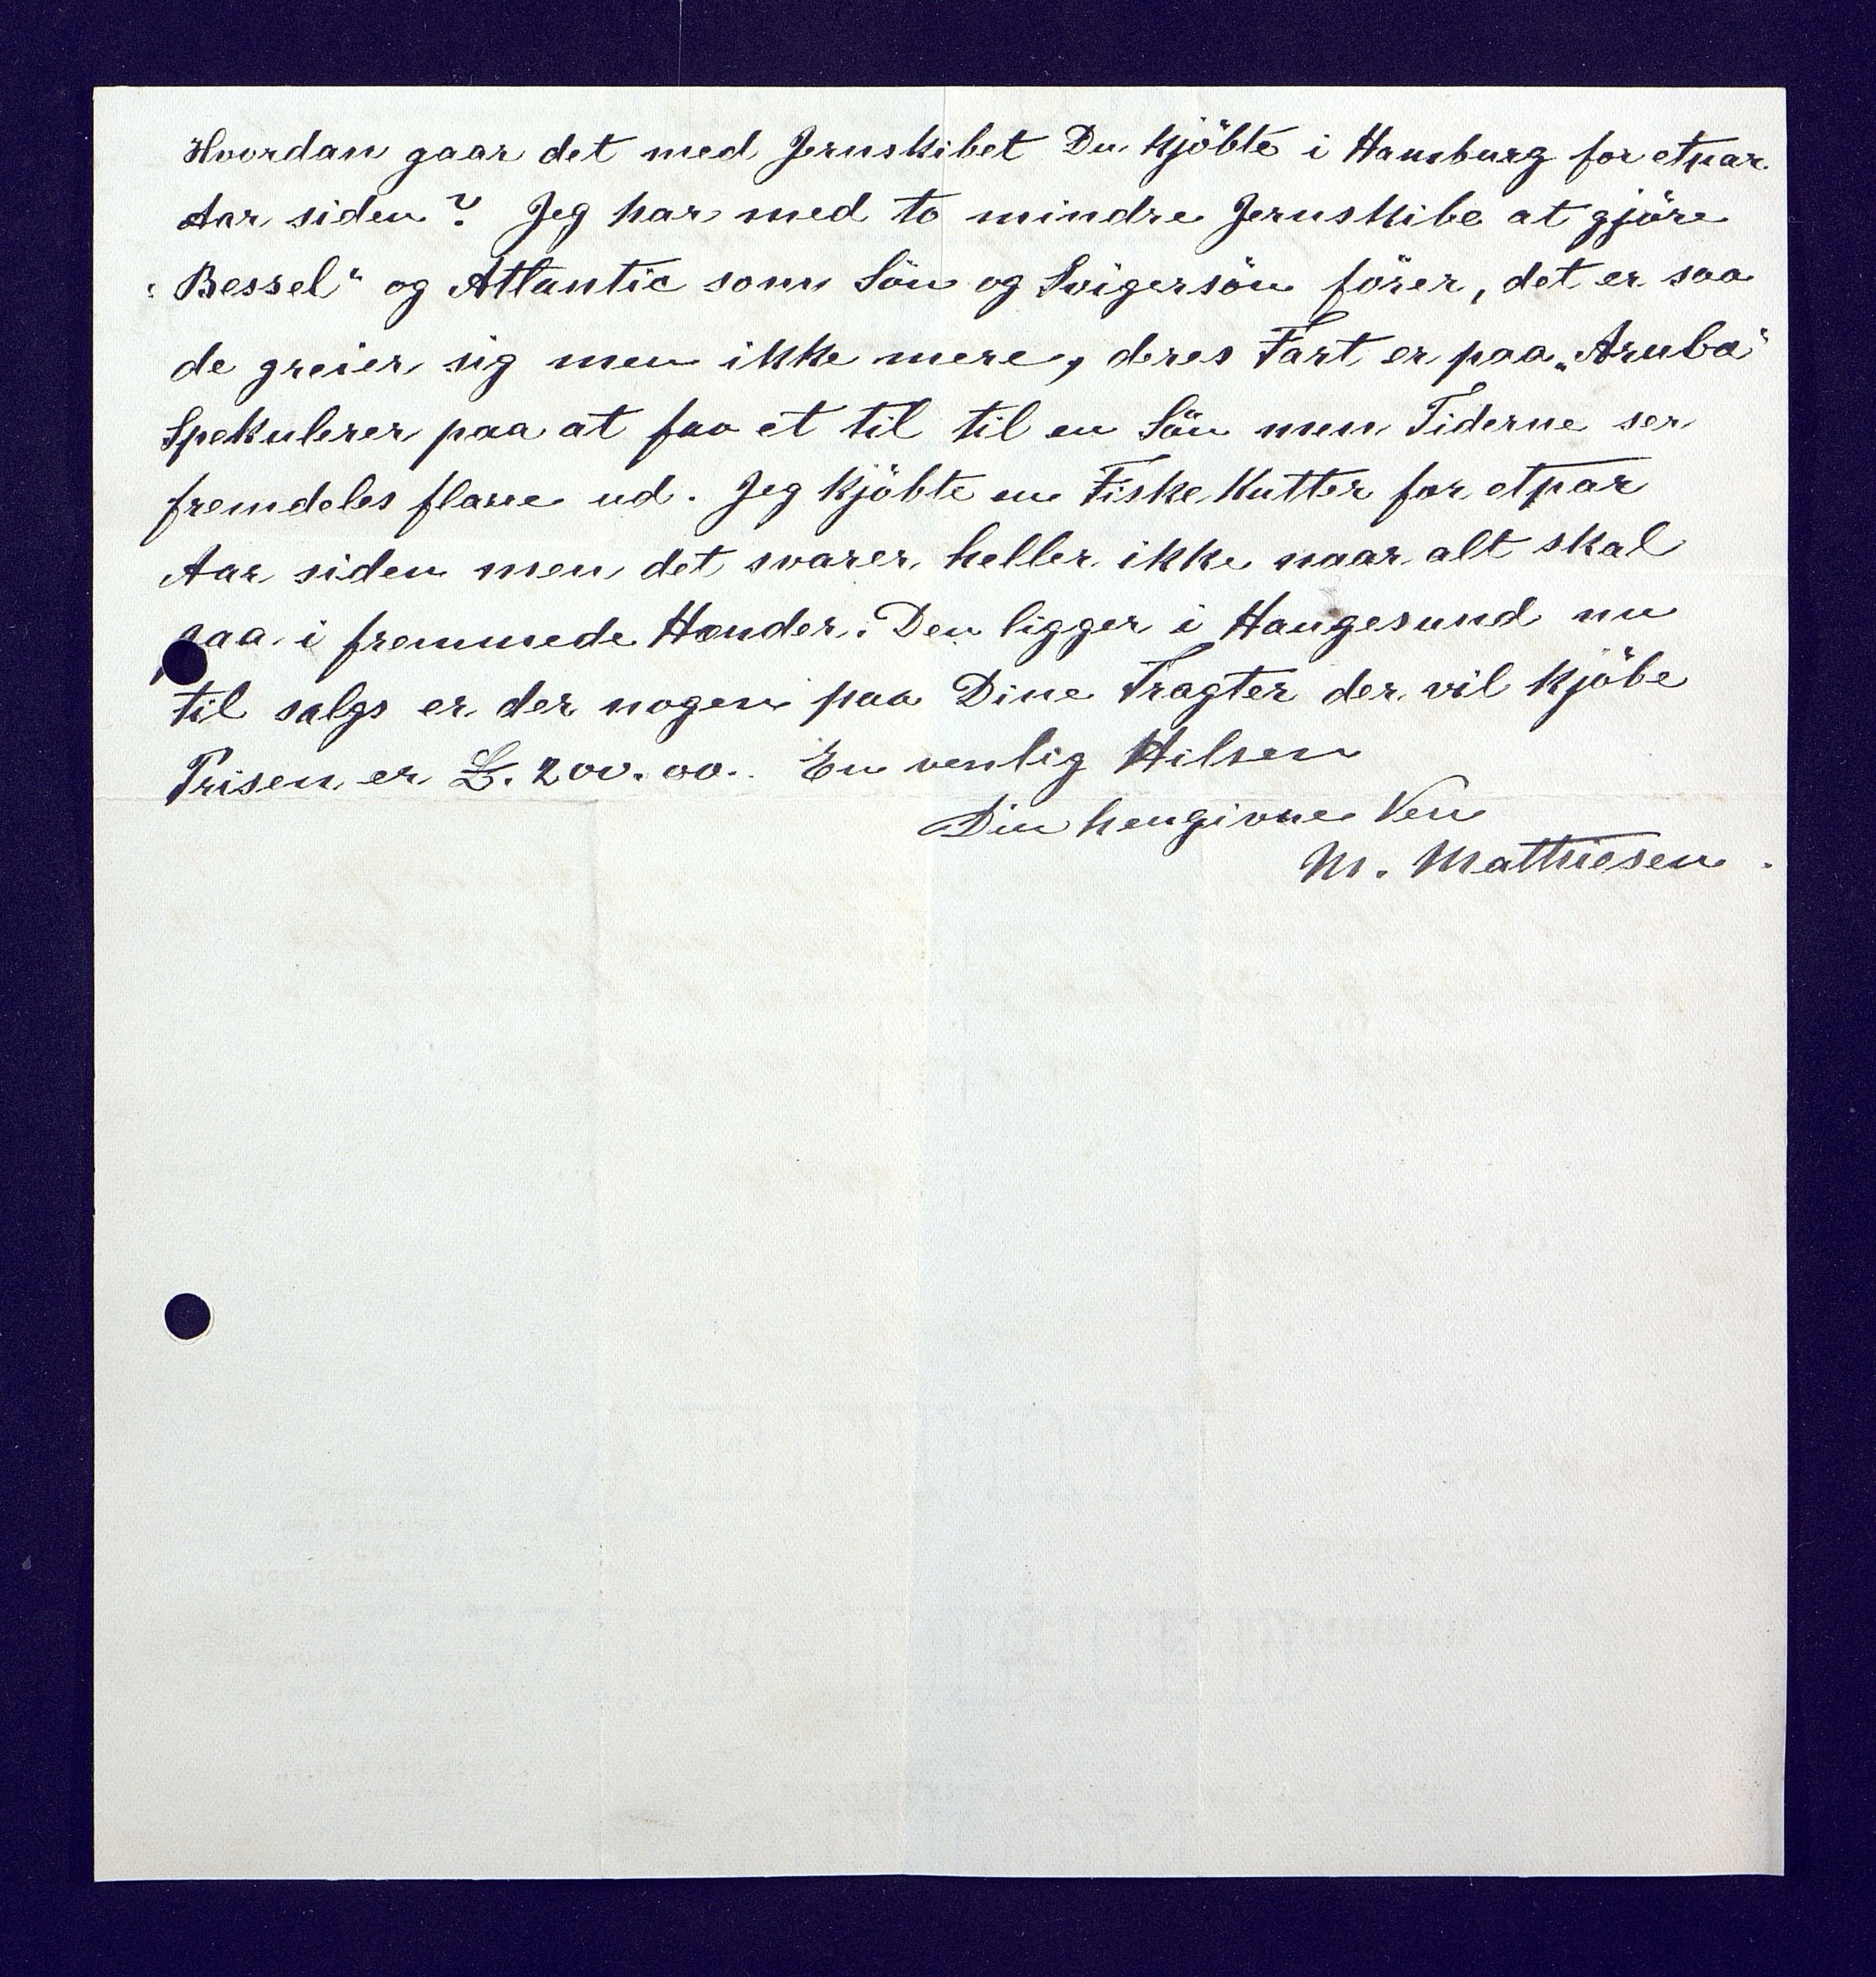 Hvordan gaar det med Jernskibet Du kjöbte i Hamburg for etpar
Aar siden? Jeg har med to mindre Jernskibe at gjöre
"Bessel" og Atlantic som Sön og Svigersön förer, det er saa
de greier sig men ikke mere, deres Fart er paa „Aruba"
Spekulerer paa at faa et til til en Sön men Tiderne ser
fremdeles flaue ud. Jeg kjöbte en Fiske Kutter for etpar
Aar siden men det svarer heller ikke naar alt skal
gaa i fremmede Hænder. Den ligger i Haugesund nu
til salgs er der nogen paa Dine Tragter der vil kjöbe
Prisen er £. 200.00. En venlig Hilsen
Din hengivne Ven
M. Mathiesen.